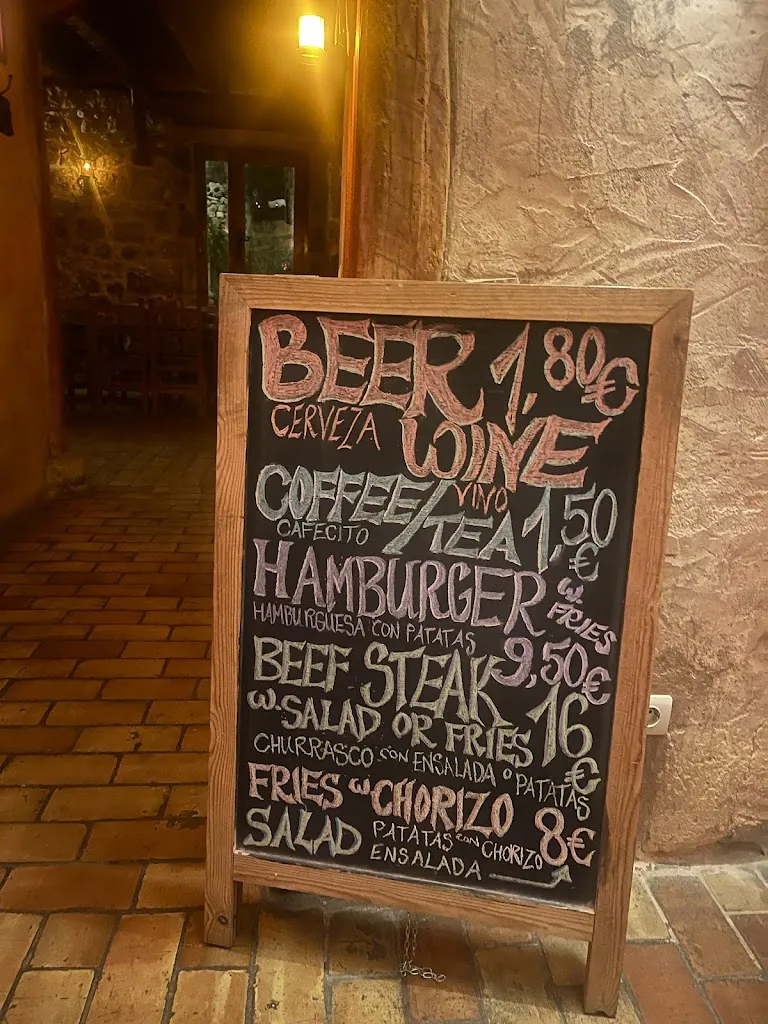 BEER 1,80€
CERVEZA WINE
VINO
COFFEE/TEA 1,50€
CAFECITO
HAMBURGER w. FRIES
HAMBURGUESA CON PATATAS 9,50€
BEEF STEAK
w. SALAD OR FRIES 16€
CHURRASCO CON ENSALADA O PATATAS
FRIES w CHORIZO 8€
SALAD PATATAS CON CHORIZO
ENSALADA